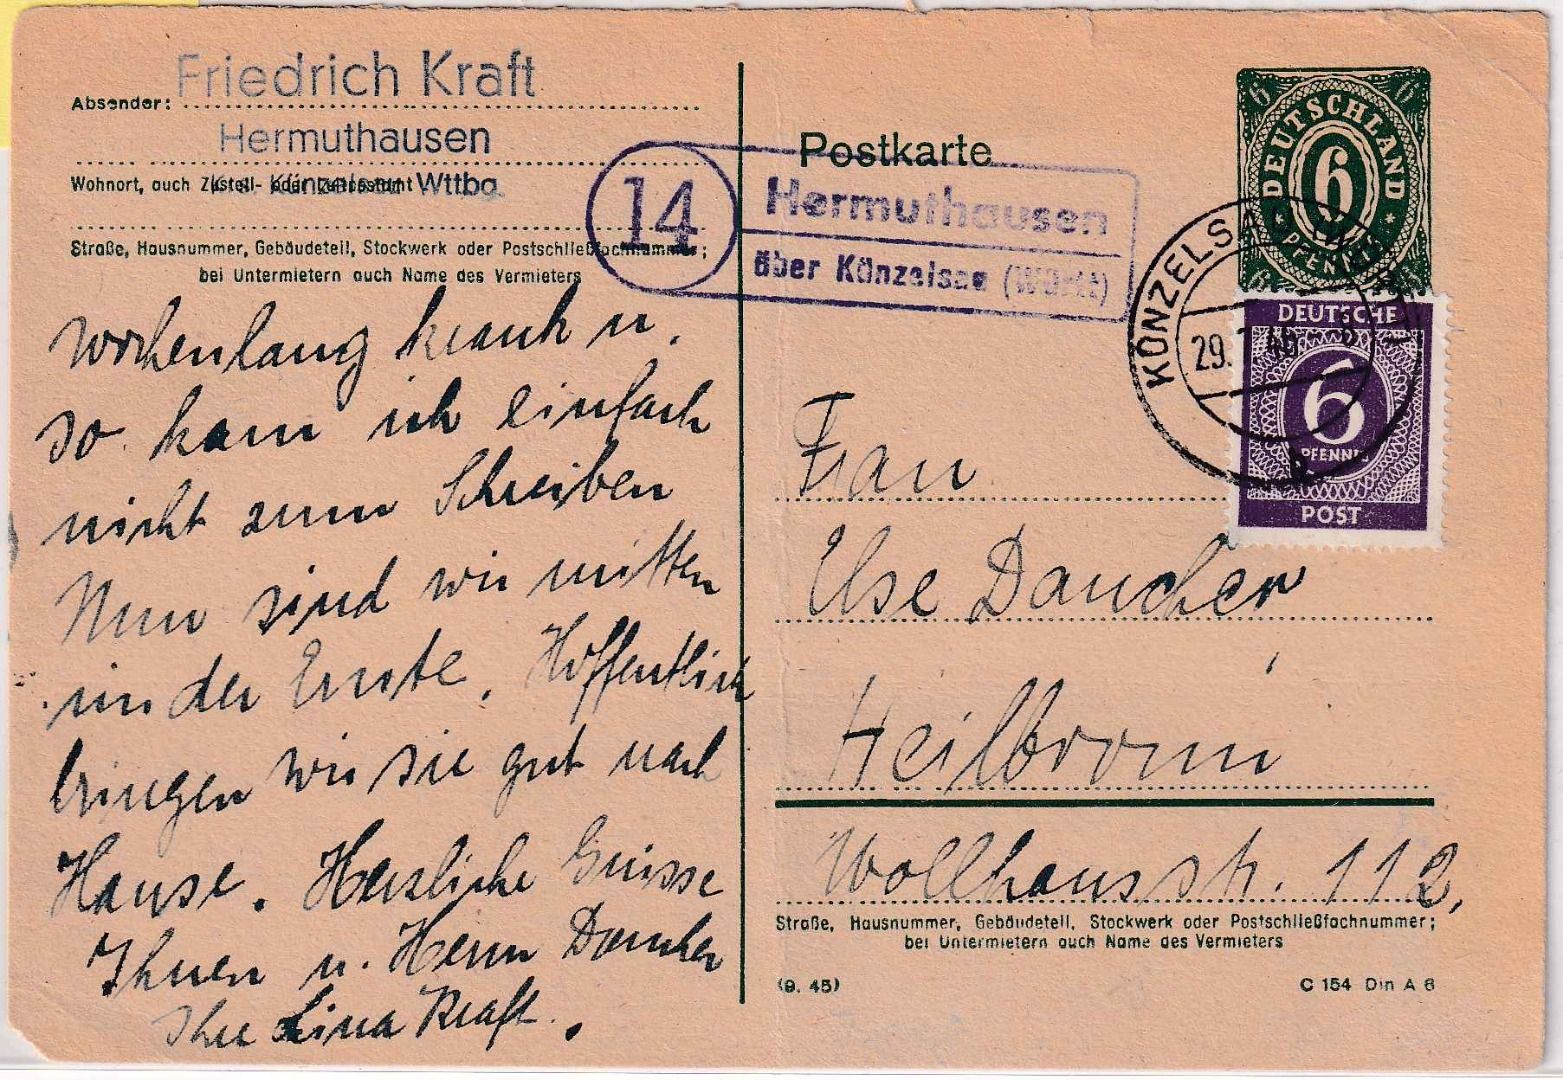 Friedrich Kraft
Absender:
Hermuthausen
Wohnort, auch Zustell- oder Leitpostamt
Krs. Künzelsau Wttbg.
Straße, Hausnummer, Gebäudeteil, Stockwerk oder Postschließfachnummer;
bei Untermietern auch Name des Vermieters
wochenlang krank u.
so kam ich einfach
nicht zum Schreiben
Nun sind wir mitten
in der Ernte. Hoffentlich
bringen wir sie gut nach
Hause. Herzliche Grüsse
Ihnen u. Herrn Daucher
Ihre Lina Kraft.
14
Hermuthausen
über Künzelsau (Württ)
Postkarte
6 6
DEUTSCHLAND
6
PFENNIG
6 6
KÜNZELSAU
29. 46
b
DEUTSCHE
6
PFENNIG
POST
Frau
Else Daucher
Heilbronn
Wollhausstr. 112,
Straße, Hausnummer, Gebäudeteil, Stockwerk oder Postschließfachnummer;
bei Untermietern auch Name des Vermieters
(9. 45)
C 154 Din A 6